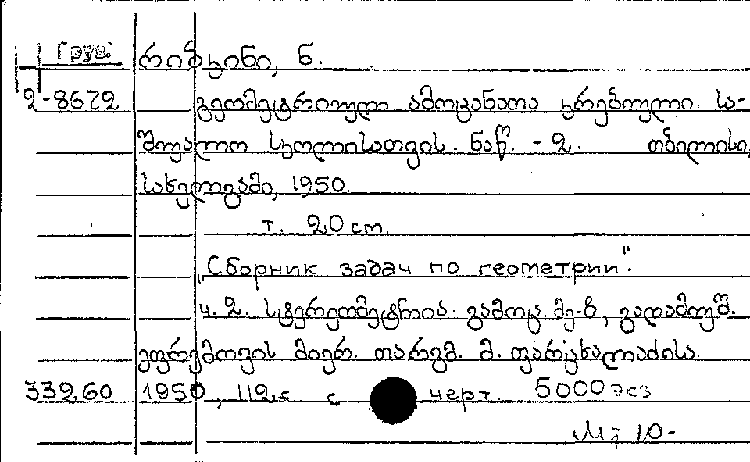 Груз.
რიბკინი, ნ.
2-8672 გეომეტრიული ამოცანათა კრებული სა-
შუალო სკოლისათვის. ნაწ. - 2. თბილისი,
სახელგამი, 1950
т. 20 cm
„Сборник задач по геометрии".
ч. 2. სტერეომეტრია. გამოც. მე-8, გადამუშ.
ეფრემოვის მიერ. თარგმ. მ. ფარცხალაძისა
33960 1950, 112 с с черт. 5000 экз
10-